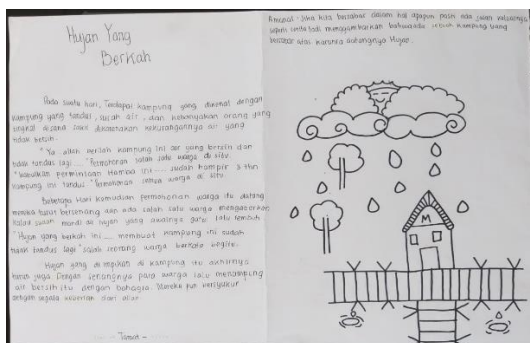 Hujan Yang
Berkah
Pada suatu hari, Terdapat kampung yang dikenal dengan
kampung yang tandus, susah air, dan kebanyakan orang yang
tinggal disana kekurangannya air yang
tidak bersih.
"Ya allah berilah kampung ini air yang bersih dan
tidak tandus lagi" Permohonan salah satu warga di situ.
"kabulkan permintaan Hamba ini hampir 3 thn
kampung ini tandus" Permohonan semua warga di situ.
Beberapa Hari kemudian permohonan warga itu datang
mereka terus bersenang ada salah satu warga
mandi di hujan yang awalnya lalu
"Hujan yang berkah ini membuat kampung ini sudah
tidak tandus lagi" salah seorang warga berkata begitu.
Hujan yang di impikan di kampung itu akhirnya
turun juga. Dengan senangnya para warga lalu menampung
air bersih itu dengan bahagia. Mereka pun bersyukur
dengan segala dari allah.
- Tamat -
Amanat : Jika kita bersabar dalam hal apapun pasti ada jalan keluarnya
seperti cerita tadi menggambarkan bahwa sebuah kampung yang
bersabar atas karunia datangnya Hujan.
M